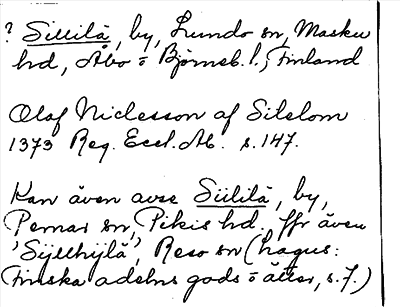 ? Sillilä, by, Lundo sn, Masku
hd, Åbo o Björneb. l., Finland
Olaf Niclesson af Silelom
1373 Reg. Eccl. Ab. s. 147.
Kan även avse Siililä, by,
Pemar sn, Pikis hd. Jfr även
'Syllhylä', Reso sn (Lagus:
Finska adelns gods o ätter, s. 7.)